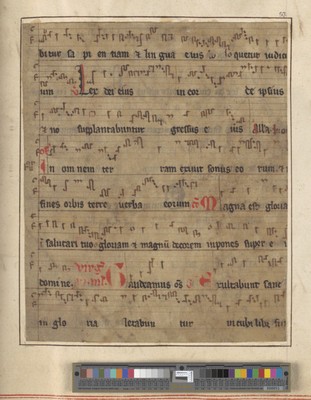 bitur sa pi en tiam & lin gua eius lo quetur iudici
um Lex dei eius in cor de ipsius
& no supplantabuntur gressus e ius Alla
In om nem ter ram exiuit sonus eo rum &
fines orbis terre uerba eorum Magna est gloria
i salutari tuo gloriam & magnu decorem inpones super e
domine Gaudeamus Exultabunt sanc
in glo ria letabun tur in cubilibi